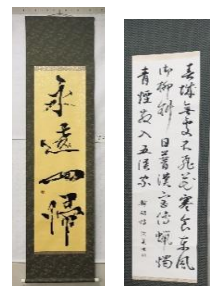 永遠一帰
春城無処不飛花寒食东風
御柳斜日暮漢宮傳蠟燭
青煙散入五侯家